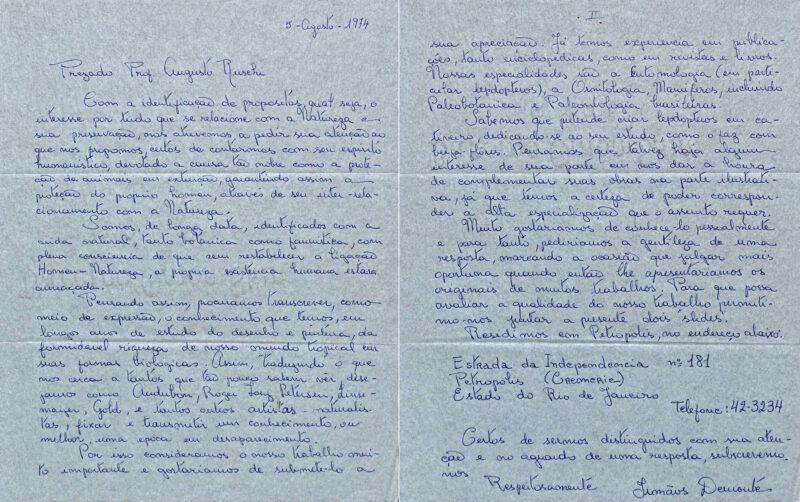 5 - Agosto - 1974
Prezado Prof. Augusto Ruschi
Com a identificação de propositos, qual seja, o
interesse por tudo que se relacione com a Natureza e
sua preservação, nos atrevemos a pedir sua atenção ao
que nos propomos, certos de contarmos com seu espirito
humanistico, devotado a causa tão nobre como a prote-
ção de animais em extinção, garantindo assim a
proteção do proprio homem, através de seu inter-rela-
cionamento com a Natureza.
Somos, de longa data, identificados com a
vida natural, tanto botânica como faunitica, com
plena consciencia de que sem restabelecer a ligação
Homem-Natureza, a propria existência humana estará
ameaçada.
Pensando assim, procuramos transcrever, como
meio de expressão, o conhecimento que temos, em
longos anos de estudo do desenho e pintura, da
formidavel riqueza de nosso mundo tropical em
suas formas biologicas. Assim, traduzindo o que
nos cerca a tantos que tão pouco sabem ver, dese-
jamos como Audubon, Roger Tory Petersen,
Gold, e tantos outros artistas - naturalis-
tas, fixar e transmitir um conhecimento, ou
melhor, uma epoca em desaparecimento.
Por isso consideramos o nosso trabalho mui-
to importante e gostariamos de submete-lo a
II
sua apreciação. Já temos experiencia em publica-
ções, tanto enciclopédicas, como em revistas e livros.
Nossas especialidades são a Entomologia (em parti-
cular lepdopteros), a Ornitologia, Mamiferos, incluindo
Paleobotanica e Paleontologia brasileiras.
Sabemos que pretende criar lepdopteros em ca-
tiveiro, dedicando-se ao seu estudo, como o faz com
beija flores. Pensamos que talvez haja algum
interesse de sua parte em nos dar a honra
de complementar suas obras na parte ilustrati-
va, já que temos a certeza de poder correspon-
der a alta especialização que o assunto requer.
Muito gostariamos de conhece-lo pessoalmente
e para tanto, pediriamos a gentileza de uma
resposta, marcando a ocasião que julgar mais
oportuna quando então lhe apresentariamos os
originais de muitos trabalhos. Para que possa
avaliar a qualidade do nosso trabalho permiti-
mo-nos juntar a presente dois slides.
Residimos em Petropolis, no endereço abaixo:
Estrada da Independencia nº 181
Petrópolis (Cremerie)
Estado do Rio de Janeiro
Telefone: 42-3234
Certos de sermos distinguidos com sua aten-
ção e no aguardo de uma resposta, subscrevemo
nos
Respeitosamente Irmãos Demonte